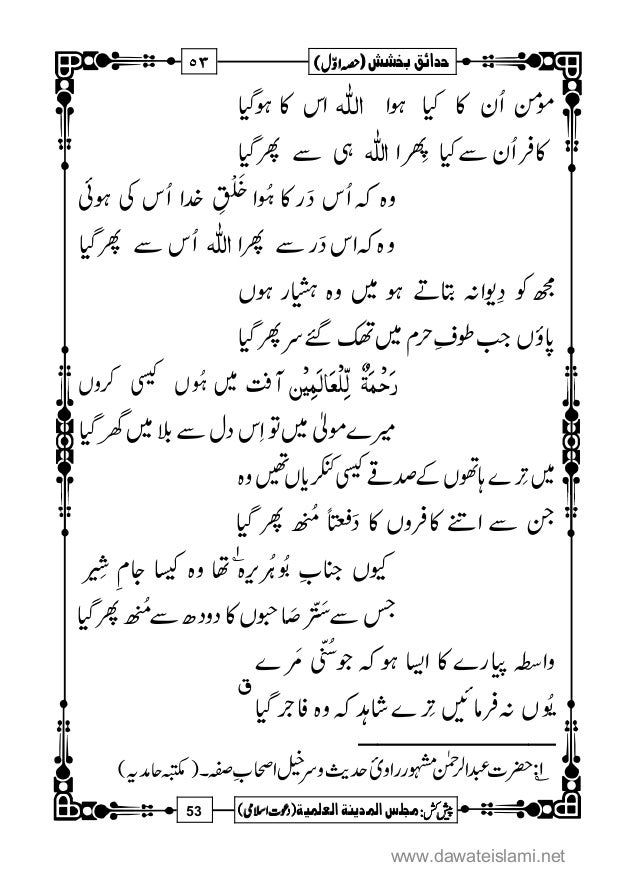 حدائق بخشش (حصہ اوّل)
۵۳
مومن اُن کا کیا ہوا اللہ اس کا ہوگیا
کافر اُن سے کیا پِھرا اللہ ہی سے پھر گیا
وہ کہ اُس دَر کا ہُوا خَلْقِ خدا اُس کی ہوئی
وہ کہ اس دَر سے پھرا اللہ اُس سے پھر گیا
مجھ کو دِیوانہ بتاتے ہو میں وہ ہشیار ہوں
پاؤں جب طوفِ حرم میں تھک گئے سر پھر گیا
رَحْمَةٌ لِّلْعَالَمِیْن آفت میں ہُوں کیسی کروں
میرے مولیٰ میں تو اِس دل سے بلا میں گھر گیا
میں تِرے ہاتھوں کے صدقے کیسی کنکریاں تھیں وہ
جن سے اتنے کافروں کا دَفعتاً مُنھ پھر گیا
کیوں جنابِ بُوہُریرہ۱ تھا وہ کیسا جامِ شِیر
جس سے سَتّر صَاحبوں کا دودھ سے مُنھ پھر گیا
واسطہ پیارے کا ایسا ہو کہ جو سُنّی مَرے
یُوں نہ فرمائیں تِرے شاہد کہ وہ فاجر گیا ق
۱: حضرت عبدالرحمٰن مشہور راویٔ حدیث و سرخیل اصحابِ صفہ۔ (مکتبہ حامدیہ)
پیش کش: مجلس المدینۃ العلمیۃ (دعوت اسلامی)
53
www.dawateislami.net